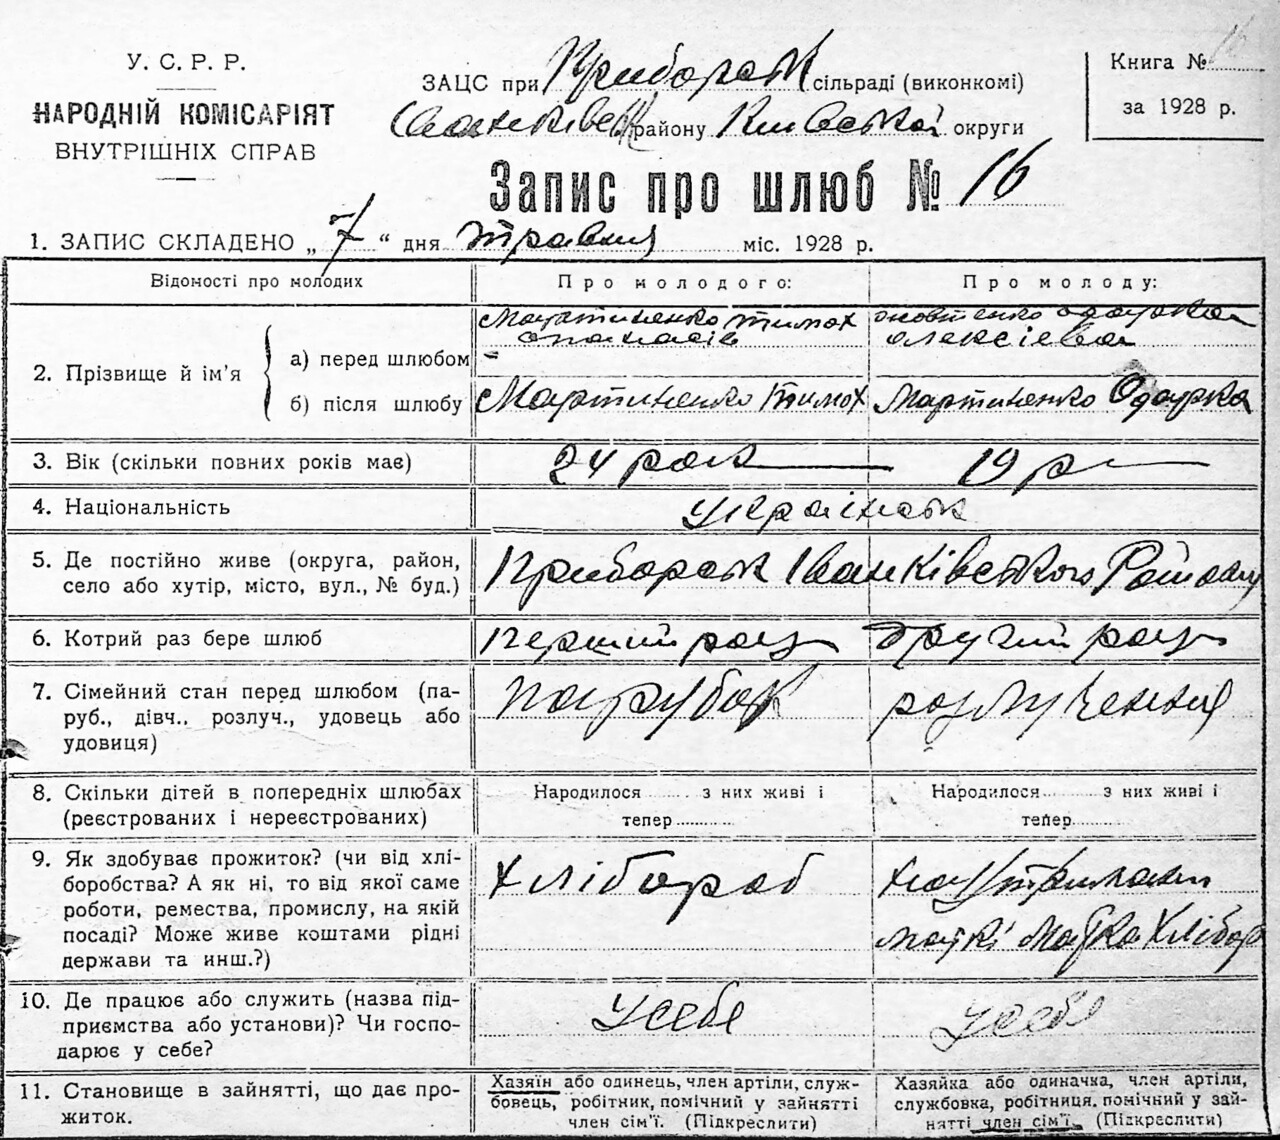 У. С. Р. Р.
НАРОДНІЙ КОМІСАРІЯТ
ВНУТРІШНІХ СПРАВ
ЗАЦС при Приборськ сільраді (виконкомі)
Іванківськ району Київської округи
Книга № 16
за 1928 р.
Запис про шлюб № 16
1. ЗАПИС СКЛАДЕНО „ 7 “ дня травня міс. 1928 р.
Відомості про молодих
Про молодого:
Про молоду:
2. Прізвище й ім’я
а) перед шлюбом
Мартиненко Тимох
опанасів
Одарка
олексієва
б) після шлюбу
Мартиненко Тимох
Мартиненко Одарка
3. Вік (скільки повних років має)
24 рок
19 р
4. Національність
Українськ
5. Де постійно живе (округа, район,
село або хутір, місто, вул., № буд.)
Приборськ Іванківського Району
6. Котрий раз бере шлюб
перший раз
другий раз
7. Сімейний стан перед шлюбом (па-
руб., дівч., розлуч., удовець або
удовиця)
парубок
розлученная
8. Скільки дітей в попередніх шлюбах
(реєстрованих і нереєстрованих)
Народилося ....... з них живі і
тепер ..........
Народилося ....... з них живі і
тепер ..........
9. Як здобуває прожиток? (чи від хлі-
боробства? А як ні, то від якої саме
роботи, ремества, промислу, на якій
посаді? Може живе коштами рідні
держави та инш.?)
Хлібороб
на утриманн
маткі матка Хлібор
10. Де працює або служить (назва під-
приємства або установи)? Чи госпо-
дарює у себе?
усебе
усебе
11. Становище в зайнятті, що дає про-
житок.
Хазяїн або одинець, член артіли, служ-
бовець, робітник, помічний у зайнятті
член сім’ї. (Підкреслити)
Хазяйка або одиначка, член артіли,
службовка, робітниця, помічний у зай-
нятті член сім’ї. (Підкреслити)